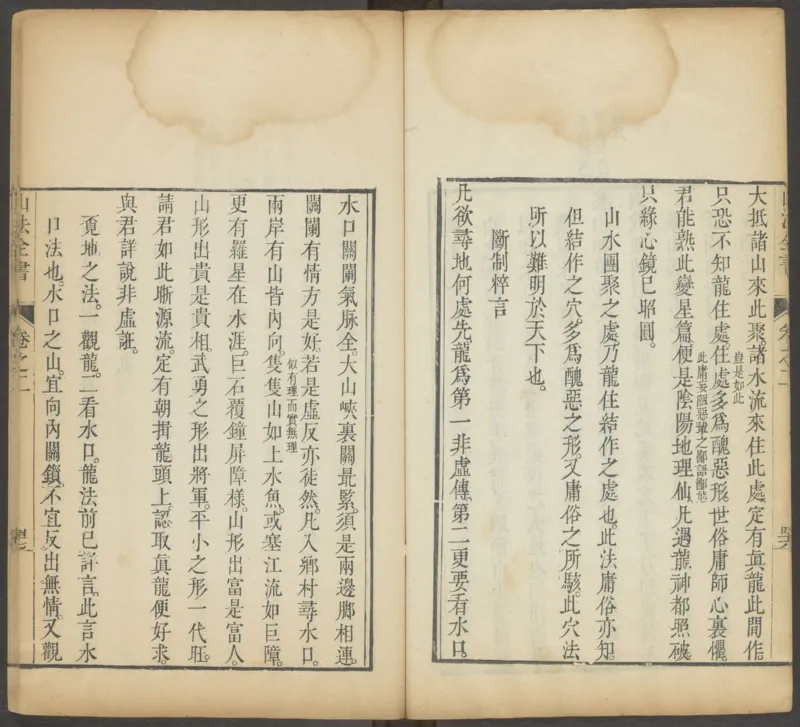 大抵諸山來此聚。諸水流來住此處。定有真龍此間作。
豈是如此
只恐不知龍住處。住處多為醜惡形。世俗庸師心裏懼。
此庸妄
君能熟此變星篇。便是陰陽地理仙。凡遇龍神都照破。
只緣心鏡已昭圓。
山水團聚之處。乃龍住結作之處也。此法庸俗亦知。
但結作之穴。多為醜惡之形。又庸俗之所駭。此穴法
所以難明於天下也。
斷制粹言
凡欲尋地何處先。龍為第一非虛傳。第二更要看水口。
水口關闌氣脉全。大山峽裏關最緊。須是兩邊脚相連。
關闌有情方是好。若是虛反亦徒然。凡入鄉村尋水口。
似有理而實無理
兩岸有山皆內向。隻隻山如上水魚。或塞江流如巨障。
更有羅星在水涯。巨石覆鐘屏障樣。山形出富是富人。
山形出貴是貴相。武勇之形出將軍。平小之形一代旺。
請君如此斷源流。定有朝揖龍頭上。認取真龍便好求。
與君詳說非虛誑。
覓地之法。一觀龍。二看水口。龍法前已詳言。此言水
口法也。水口之山。宜向內關鎖。不宜反出無情。又觀
山法全書
卷之二